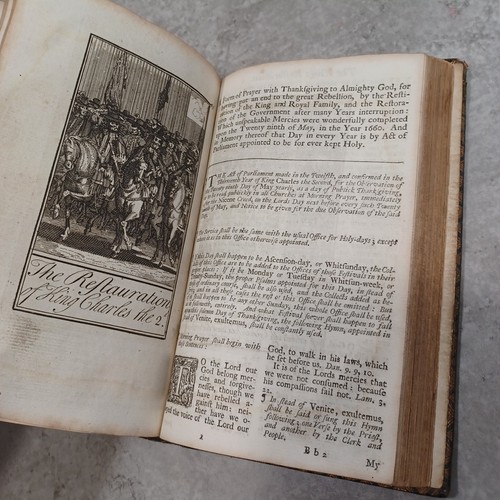 The Restauration
of King Charles the 2.
Form of Prayer with Thanksgiving to Almighty God, for
having put an end to the great Rebellion, by the Resti-
of the King and Royal Family, and the Restora-
of the Government after many Years interruption:
Which unspeakable Mercies were wonderfully completed
upon the Twenty ninth of May, in the Year 1660. And
in Memory thereof that Day in every Year is by Act of
Parliament appointed to be for ever kept Holy.
THE Act of Parliament made in the Twelfth, and confirmed in the
Thirteenth Year of King Charles the Second, for the Observation of
the Twenty ninth Day of May yearly, as a day of Publick Thanksgiving,
is to be read publickly in all Churches at Morning Prayer, immediately
after the Nicene Creed, on the Lords Day next before every such Twenty
ninth of May, and Notice to be given for the due Observation of the said
Day.
The Service shall be the same with the usual Office for Holy-days; except
where it is in this Office otherwise appointed.
If this Day shall happen to be Ascension-day, or Whitsunday, the Col-
lects of this Office are to be added to the Offices of those Festivals in their
proper places: If it be Monday or Tuesday in Whitsun-week, or
Trinity-Sunday, the proper Psalms appointed for this Day, in stead of
those of ordinary course, shall be also used, and the Collects added as be-
fore; and in all these cases the rest of this Office shall be omitted: But
if it shall happen to be any other Sunday, this whole Office shall be used,
as it followeth, entirely. And what Festival soever shall happen to fall
upon this solemn Day of Thanksgiving, the following Hymn, appointed in
stead of Venite, exultemus, shall be constantly used.
Morning Prayer shall begin with
these Sentences:
TO the Lord our
God belong mer-
cies and forgive-
nesses, though we
have rebelled a-
gainst him: nei-
ther have we o-
beyed the voice of the Lord our
God, to walk in his laws, which
he set before us. Dan. 9. 9, 10.
It is of the Lords mercies that
we were not consumed: because
his compassions fail not. Lam. 3.
22.
¶ In stead of Venite, exultemus,
shall be said or sung this Hymn
following; one Verse by the Priest,
and another by the Clerk and
People.
B b 2
My